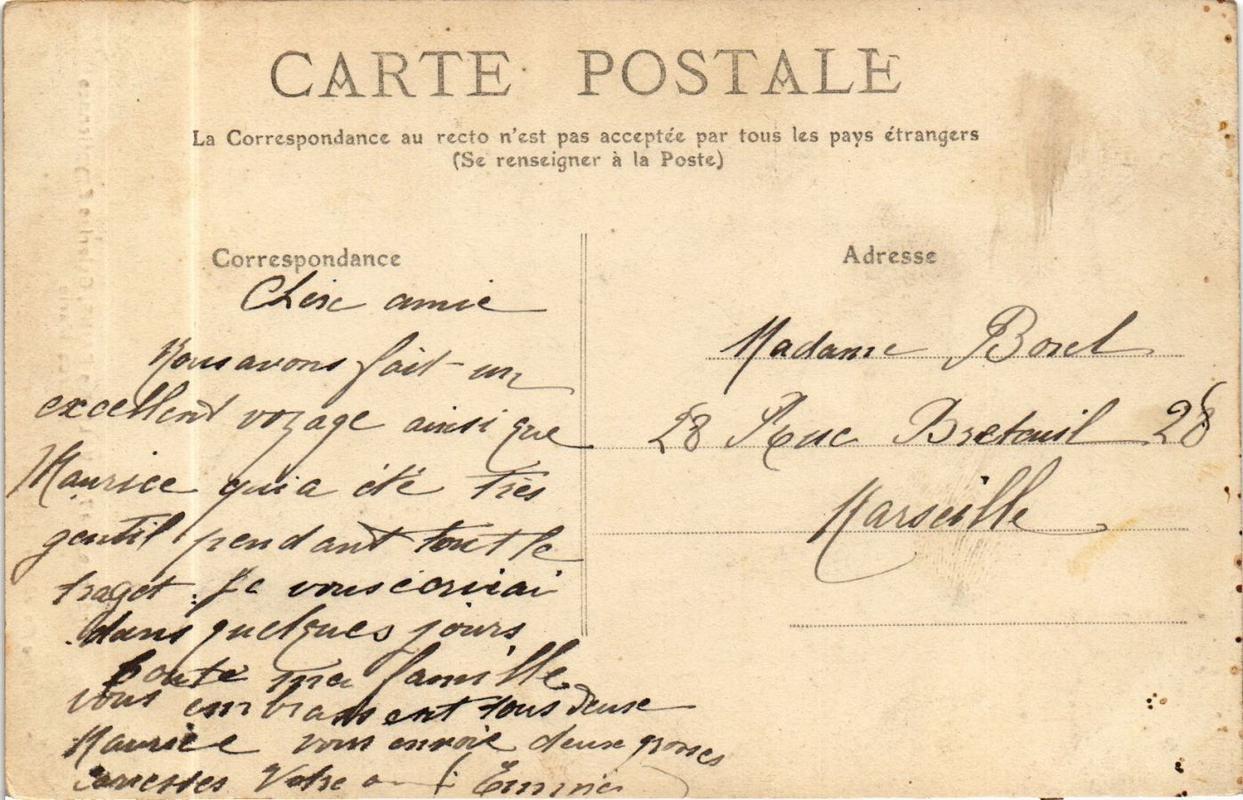 CARTE POSTALE
La Correspondance au recto n'est pas acceptée par tous les pays étrangers
(Se renseigner à la Poste)
Correspondance
Chère amie
Nous avons fait un
excellent voyage ainsi que
Maurice qui a été très
gentil pendant tout le
traget. Je vous écrirai
dans quelques jours
toute ma famille
vous embrassent tous deux
Maurice vous envoie deux grosses
carresses Votre
Adresse
Madame Borel
28 Rue Breteuil 28
Marseille